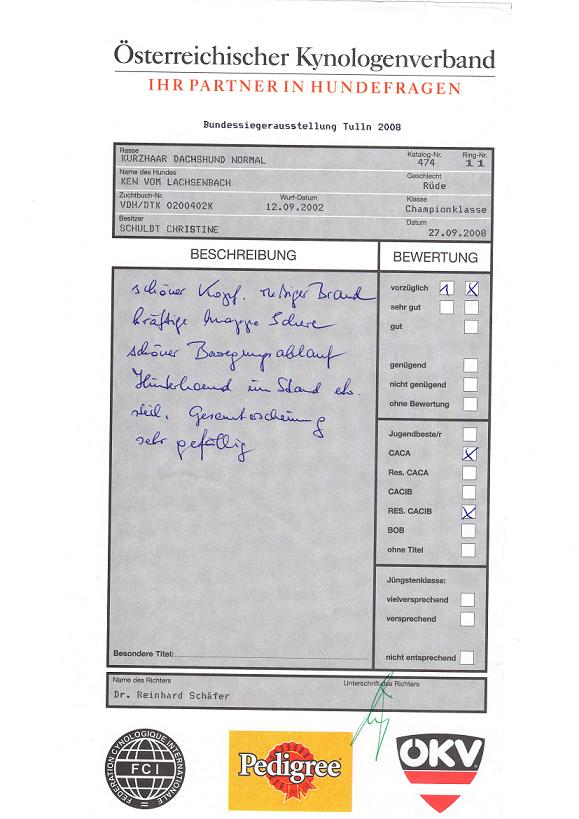 Österreichischer Kynologenverband
IHR PARTNER IN HUNDEFRAGEN
Bundessiegerausstellung Tulln 2008
Rasse
KURZHAAR DACHSHUND NORMAL
Katalog-Nr.
474
Ring-Nr.
11
Name des Hundes
KEN VOM LACHSENBACH
Geschlecht
Rüde
Zuchtbuch-Nr.
VDH/DTK 0200402K
Wurf-Datum
12.09.2002
Klasse
Championklasse
Besitzer
SCHULDT CHRISTINE
Datum
27.09.2008
BESCHREIBUNG
schöner Kopf. Brand
kräftige knappe Schere
schöner Bewegungsablauf
Hinterhand im Stand etw.
steil. Gesamterscheinung
sehr gefällig
Besondere Titel:
BEWERTUNG
vorzüglich 1 X
sehr gut
gut
genügend
nicht genügend
ohne Bewertung
Jugendbeste/r
CACA X
Res. CACA
CACIB
RES. CACIB X
BOB
ohne Titel
Jüngstenklasse:
vielversprechend
versprechend
nicht entsprechend
Name des Richters
Dr. Reinhard Schäfer
Unterschrift des Richters
FEDERATION CYNOLOGIQUE INTERNATIONALE
FCI
Pedigree
ÖKV